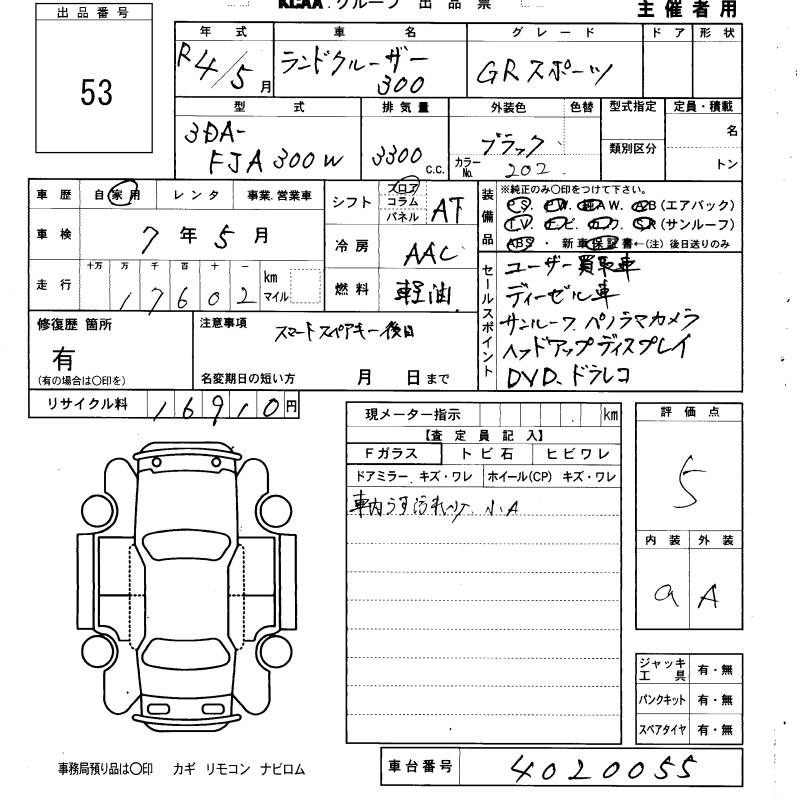 KCAA グループ 出品票
主催者用
出品番号
53
年式 車名 グレード ドア 形状
R4/5月 ランドクルーザー300 GRスポーツ
型式 排気量 外装色 色替 型式指定 定員・積載
3DA-FJA300W 3300 C.C. ブラック カラーNo. 202 類別区分 名 トン
車歴 自家用 レンタ 事業.営業車
シフト フロア コラム パネル AT
装備品 ※純正のみ〇印をつけて下さい。
P.S. P.W. 純A.W. A.B(エアバック)
T.V. ナビ. カワ. S.R(サンルーフ)
ABS ・ 新車保証書←(注) 後日送りのみ
車検 7年5月
冷房 AAC
走行 十万 万 千 百 十 一
17602 km マイル
燃料 軽油
セールスポイント
ユーザー買取車
ディーゼル車
サンルーフ. パノラマカメラ
ヘッドアップディスプレイ
DVD、ドラレコ
修復歴 箇所
有
(有の場合は〇印を)
注意事項
スマートスペアキー後日
名変期日の短い方 月 日まで
リサイクル料 16910円
現メーター指示 . km
【査定員記入】
Fガラス トビ石 ヒビワレ
ドアミラー、キズ・ワレ ホイール(CP) キズ・ワレ
車内うす汚れ 小A
評価点
5
内装 外装
a A
ジャッキ工具 有・無
パンクキット 有・無
スペアタイヤ 有・無
事務局預り品は〇印 カギ リモコン ナビロム
車台番号 4020055